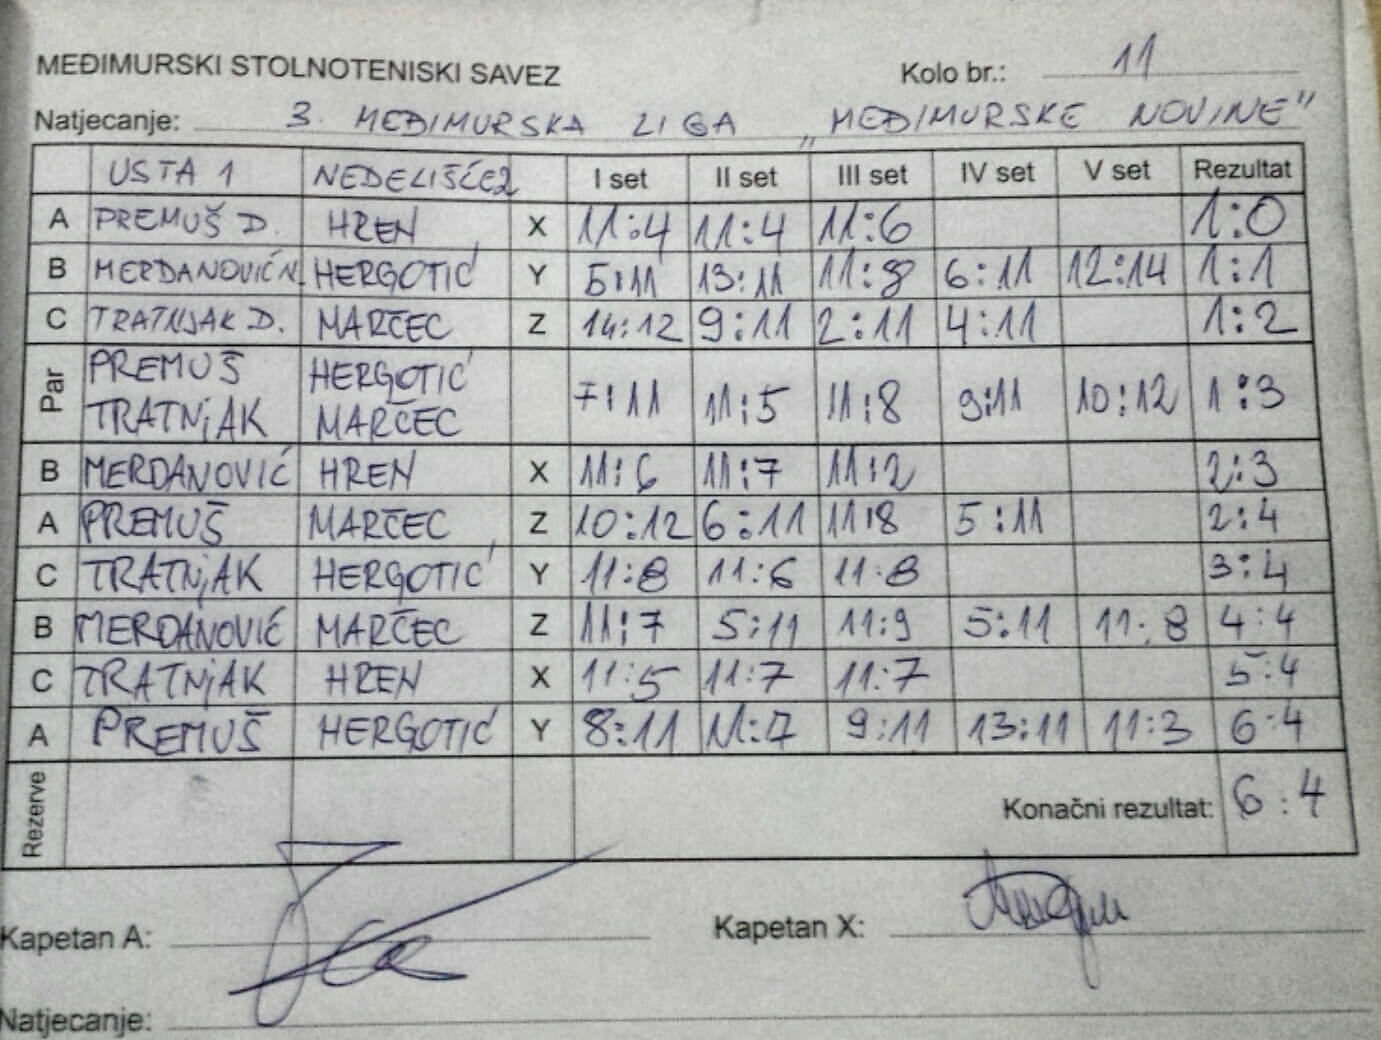 MEĐIMURSKI STOLNOTENISKI SAVEZ Kolo br.: 11
Natjecanje: 3. MEĐIMURSKA LIGA „MEĐIMURSKE NOVINE"
USTA 1 NEDELIŠĆE2 I set II set III set IV set V set Rezultat
A PREMUŠ D. HREN X 11:4 11:4 11:6 1:0
B MERDANOVIĆ N. HERGOTIĆ Y 5:11 13:11 11:8 6:11 12:14 1:1
C TRATNJAK D. MARČEC Z 14:12 9:11 2:11 4:11 1:2
Par PREMUŠ HERGOTIĆ 7:11 11:5 11:8 9:11 10:12 1:3
TRATNJAK MARČEC
B MERDANOVIĆ HREN X 11:6 11:7 11:2 2:3
A PREMUŠ MARČEC Z 10:12 6:11 11:8 5:11 2:4
C TRATNJAK HERGOTIĆ Y 11:8 11:6 11:8 3:4
B MERDANOVIĆ MARČEC Z 11:7 5:11 11:9 5:11 11:8 4:4
C TRATNJAK HREN X 11:5 11:7 11:7 5:4
A PREMUŠ HERGOTIĆ Y 8:11 11:7 9:11 13:11 11:3 6:4
Rezerve Konačni rezultat: 6:4
Kapetan A: Kapetan X:
Natjecanje: